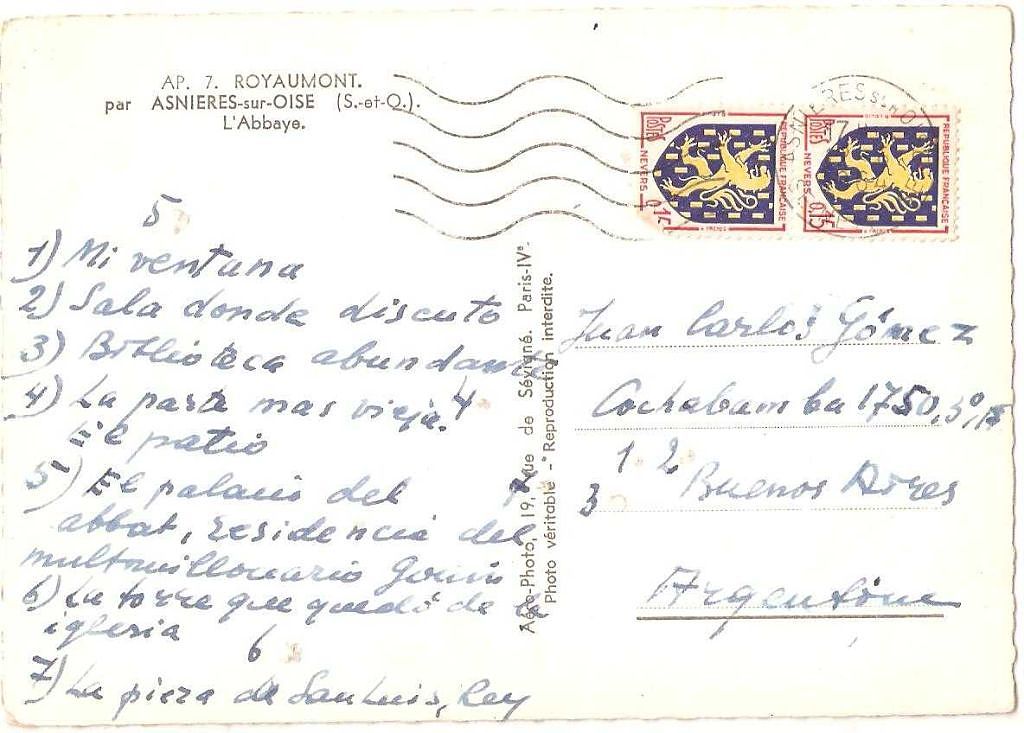 AP. 7. ROYAUMONT.
par ASNIERES-sur-OISE (S.-et-O.).
L'Abbaye.
5
1) Mi ventana
2) Sala donde discuto
3) Biblioteca abundante
4) La parte mas vieja. 4
El patio
5) El palacio del
abbat, residencia del
multimillonario Gouin
6) La torre que quedó de la
iglesia
6
7) La pieza de San Luis, Rey
Aéro-Photo, 19, rue de Sévigné. Paris-IVe.
Photo véritable - Reproduction interdite.
POSTES
NEVERS
0,15
REPUBLIQUE FRANÇAISE
POSTES
NEVERS
0,15
REPUBLIQUE FRANÇAISE
ASNIERES
Juan Carlos Gómez
Cochabamba 1750, 3º,
1 2
Buenos Aires
3
Argentine